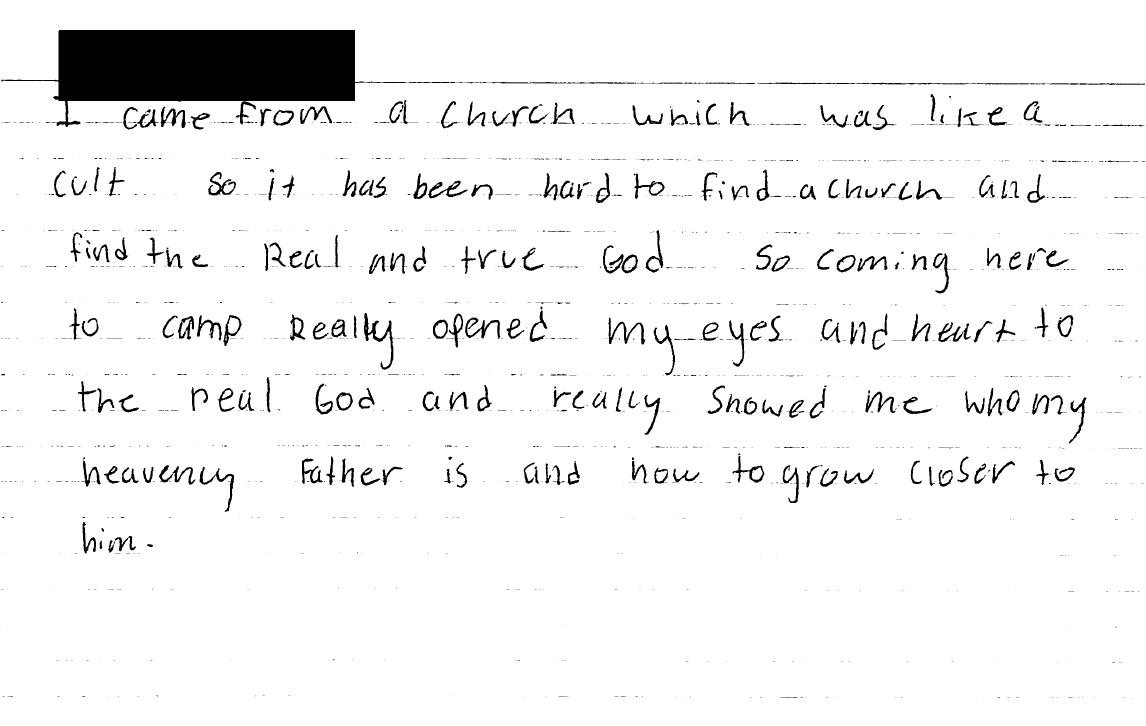 I came from a church which was like a
cult so it has been hard to find a church and
find the Real and true God so coming here
to camp Really opened my eyes and heart to
the real God and really showed me who my
heavenly Father is and how to grow closer to
him.